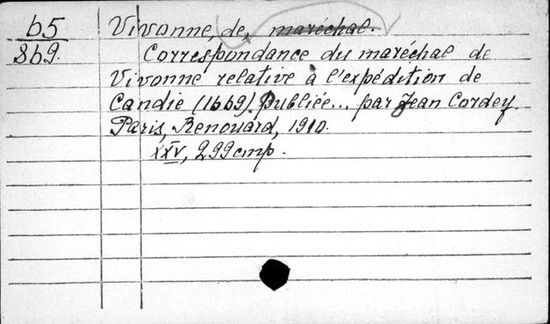 b5
869.
Vivonne, de, maréchal.
Correspondance du maréchal de
Vivonne relative à l'expédition de
Candie (1669). Publiée... par Jean Cordey
Paris, Renouard, 1910.
XXV, 299 cmp.